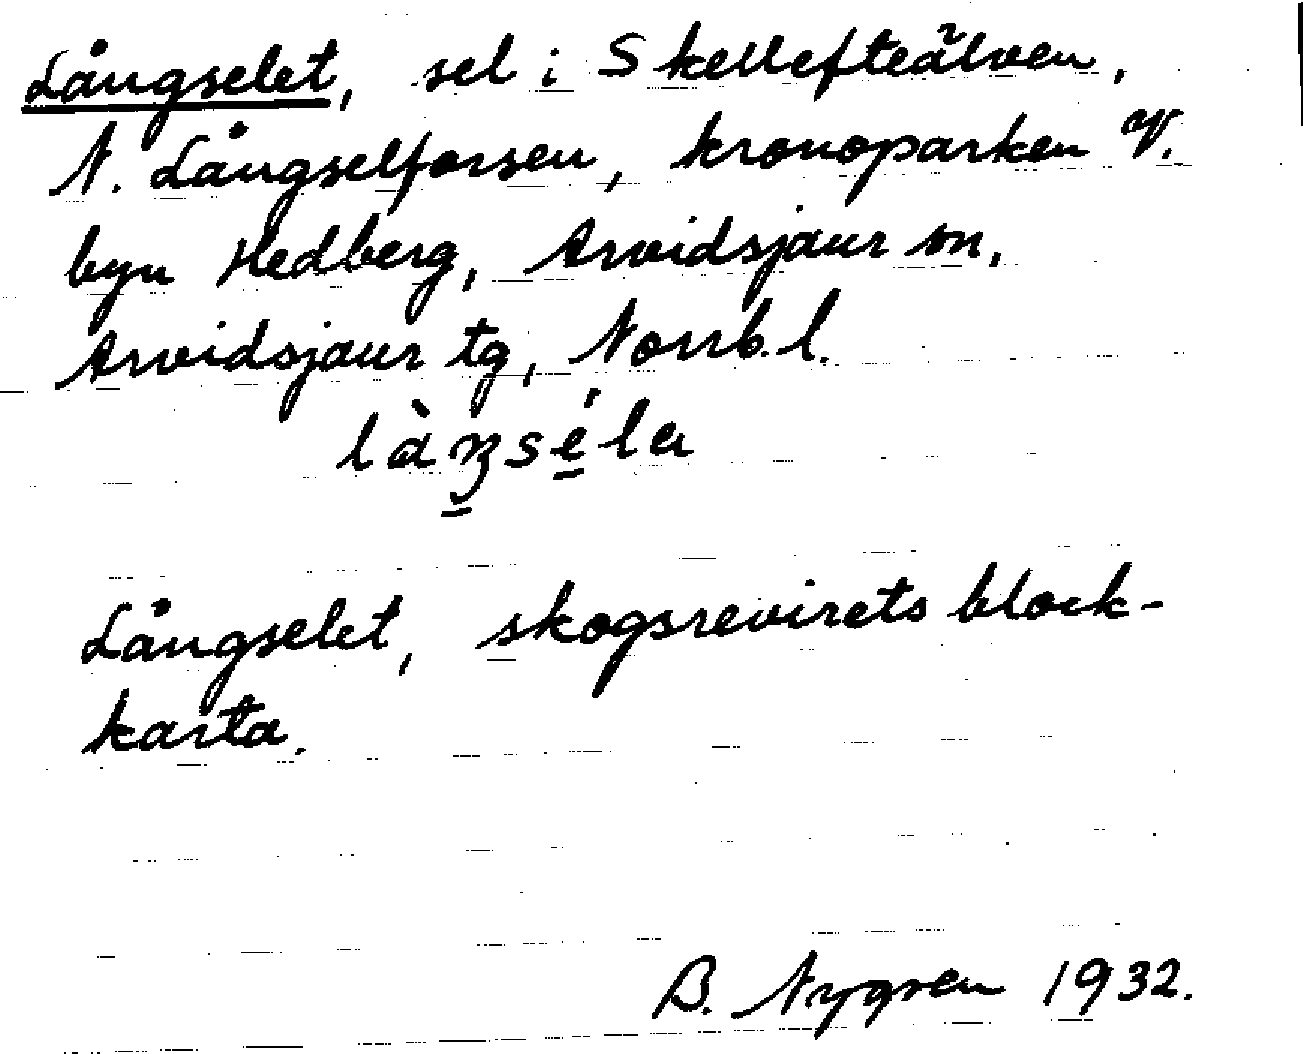 Långselet, sel i Skellefteälven,
N. Långselforsen, kronoparken V.
byn Hedberg, Arvidsjaur sn,
Arvidsjaur tg, Norrb. l.
Långselet, skogsrevirets block-
karta.
B. Nygren 1932.